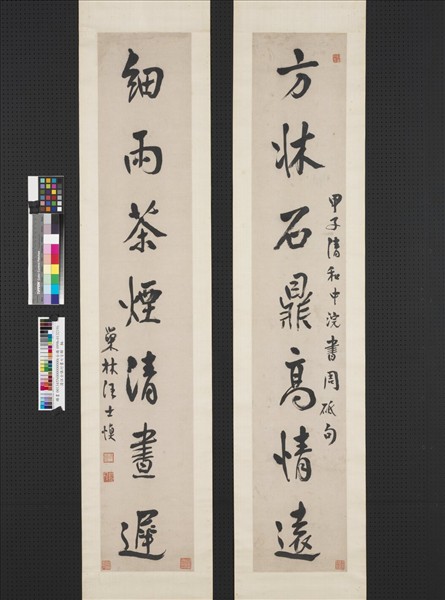 甲子清和中浣書周砥句
方牀石鼎高情遠
細雨茶煙清晝遲
巢林汪士慎